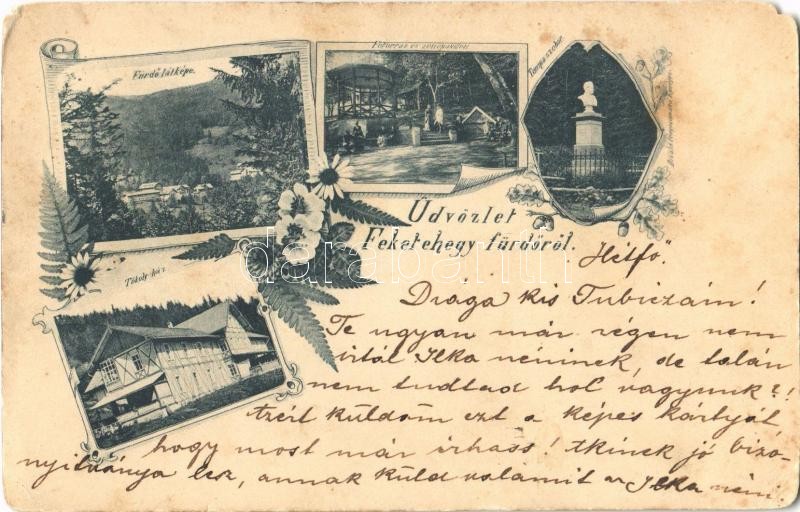 Fürdő látképe.
Főforrás és zenepavillon
Tököly-ház
Üdvözlet
Feketehegy-fürdőről.
Hétfő.
Drága kis Tubiczám!
Te ugyan már régen nem
írtál Ilka néninek, de talán
nem tudtad hol vagyunk?!
Azért küldöm ezt a képes kartyát
hogy most már irhass! Akinek jó bizo-
nyitványa lesz, annak küld valamit az Ilka néni.
darabanth